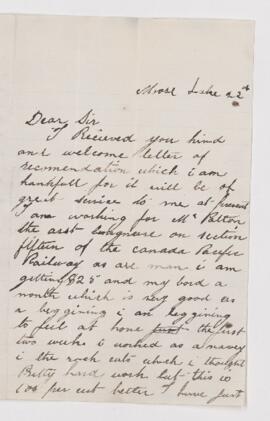 Moose Lake 22nd
Dear Sir
I Recieved you kind
and welcome letter of
recomendation which i am
thankfull for it will be of
great service to me at present
I am working for Mr
the asst on section
fifteen of the canada Pacific
Railway as axe man i am
getting $25 and my bord a
month which is very good as
a beggining i am beggining
to feel at home just the first
two weeks i worked as a navey
i the rock cuts which i thought
Pretty hard work but this is
100 per cut better I have just